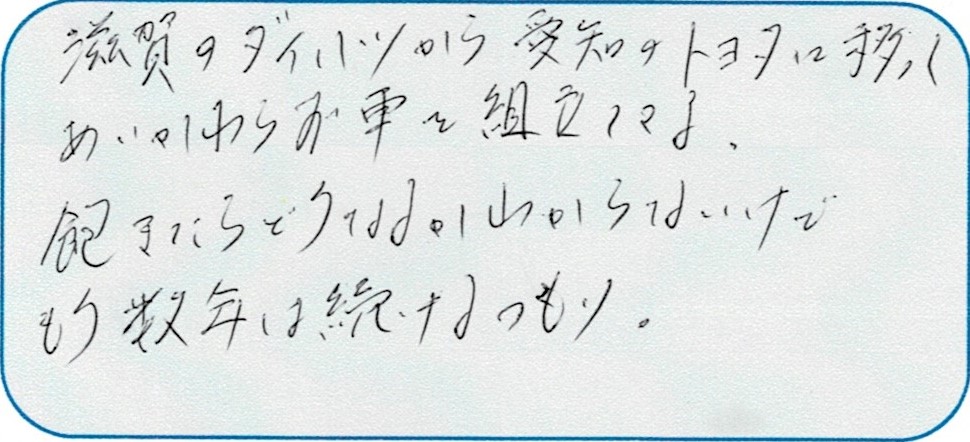 滋賀のダイハツから愛知のトヨタに移り
あいかわらず車を組立てるよ、
飽きたらどうなるかわからないけど
もう数年は続けるつもり。